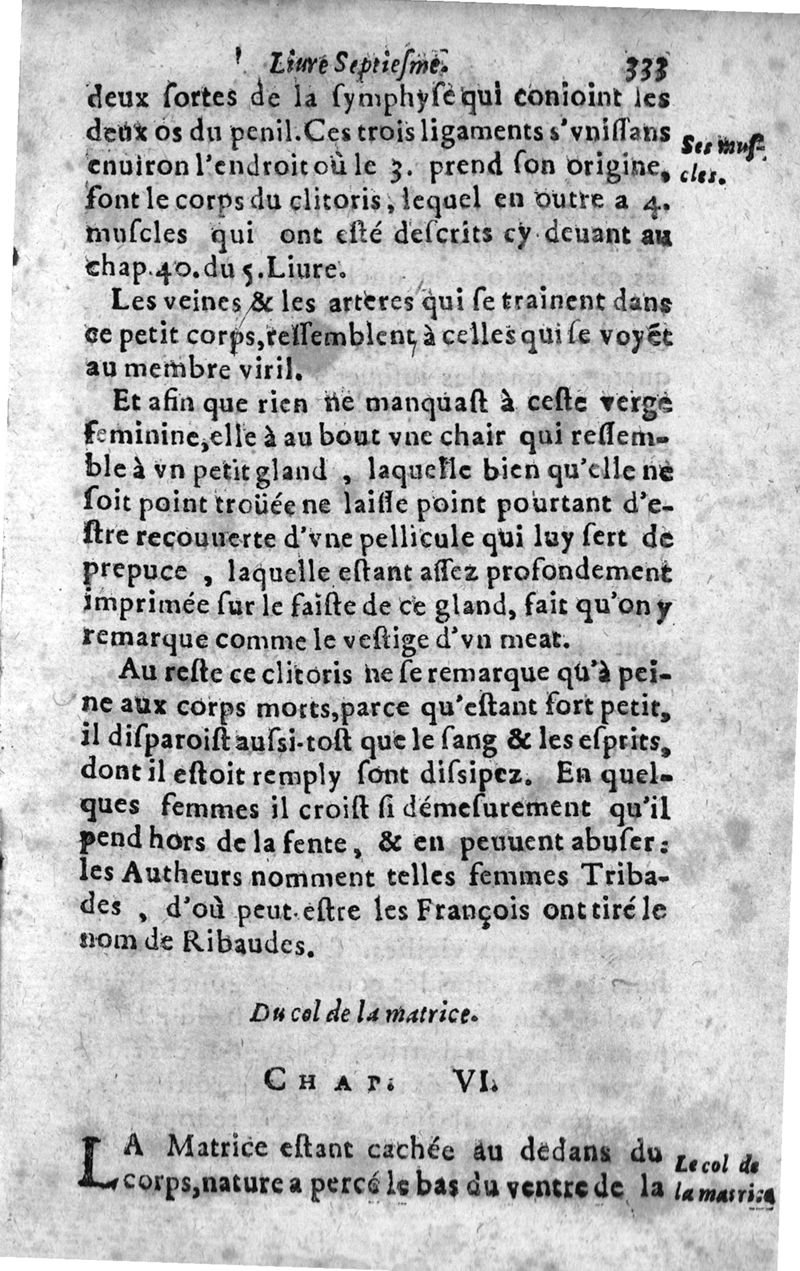 Liure Septiesme. 333
deux ſortes de la ſymphyſe qui conioint les
deux os du penil. Ces trois ligaments s'vniſſans
Ses muſ-
enuiron l'endroit où le 3. prend ſon origine,
cles.
font le corps du clitoris, lequel en outre a 4.
muſcles qui ont eſté deſcrits cy deuant au
chap. 40. du 5. Liure.
Les veines & les arteres qui ſe trainent dans
ce petit corps, reſſemblent à celles qui ſe voyẽt
au membre viril.
Et afin que rien ne manquaſt à ceſte verge
feminine, elle à au bout vne chair qui reſſem-
ble à vn petit gland , laquelle bien qu'elle ne
ſoit point troüée ne laiſſe point pourtant d'e-
ſtre recouuerte d'vne pellicule qui luy ſert de
prepuce , laquelle eſtant aſſez profondement
imprimée ſur le faiſte de ce gland, fait qu'on y
remarque comme le veſtige d'vn meat.
Au reſte ce clitoris ne ſe remarque qu'à pei-
ne aux corps morts, parce qu'eſtant fort petit,
il diſparoiſt auſsi-toſt que le ſang & les eſprits,
dont il eſtoit remply ſont diſsipez. En quel-
ques femmes il croiſt ſi démeſurement qu'il
pend hors de la fente, & en peuuent abuſer:
les Autheurs nomment telles femmes Triba-
des , d'où peut-eſtre les François ont tiré le
nom de Ribaudes.
Du col de la matrice.
CHAP. VI.
LA Matrice eſtant cachée au dedans du
Le col de
corps, nature a percé le bas du ventre de la
la matrice